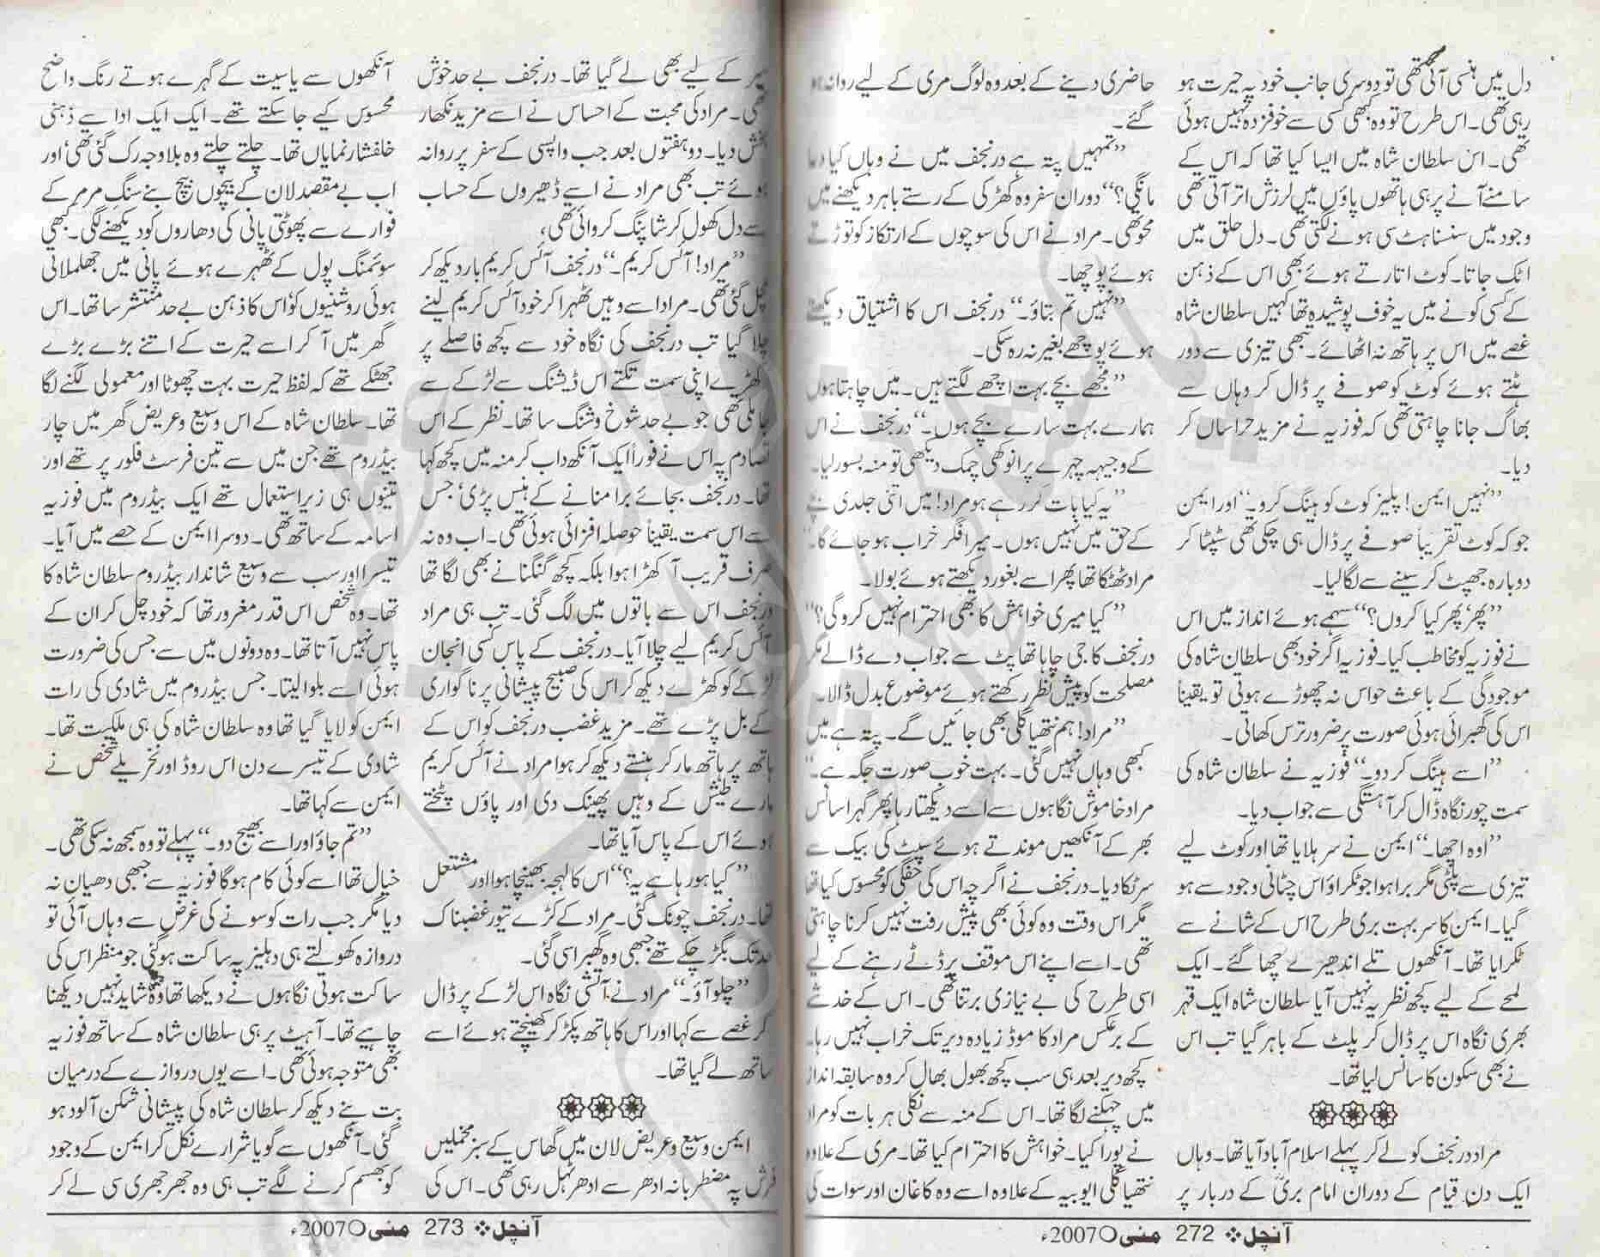 دل میں ہنسی آئی تھی تو دوسری جانب خود پہ حیرت ہو
رہی تھی۔ اس طرح تو وہ کبھی کسی سے خوفزدہ نہیں ہوئی
تھی۔ اس سلطان شاہ میں ایسا کیا تھا کہ اس کے
سامنے آنے پر ہی ہاتھوں پاؤں میں لرزش اتر آتی تھی
وجود میں سنسناہٹ سی ہونے لگتی تھی۔ دل حلق میں
اٹک جاتا۔ کوٹ اتارتے ہوئے بھی اس کے ذہن
کے کسی کونے میں یہ خوف پوشیدہ تھا کہیں سلطان شاہ
غصے میں اس پر ہاتھ نہ اٹھائے۔ جبھی تیزی سے دور
ہٹتے ہوئے کوٹ کو صوفے پر ڈال کر وہاں سے
بھاگ جانا چاہتی تھی کہ فوزیہ نے مزید حراساں کر
دیا۔
”نہیں ایمن! پلیز کوٹ کو ہینگ کرو۔“ اور ایمن
جو کہ کوٹ تقریباً صوفے پر ڈال ہی چکی تھی سٹپٹا کر
دوبارہ جھپٹ کر سینے سے لگا لیا۔
”پھر، پھر کیا کروں؟“ سہمے ہوئے انداز میں اس
نے فوزیہ کو مخاطب کیا۔ فوزیہ اگر خود بھی سلطان شاہ کی
موجودگی کے باعث حواس نہ چھوڑے ہوتی تو یقیناً
اس کی گھبرائی ہوئی صورت پر ضرور ترس کھاتی۔
”اسے ہینگ کر دو۔“ فوزیہ نے سلطان شاہ کی
سمت چور نگاہ ڈال کر آہستگی سے جواب دیا۔
”اوہ اچھا۔“ ایمن نے سر ہلایا تھا اور کوٹ لیے
تیزی سے پلٹی مگر برا ہوا جو ٹکراؤ اس چٹانی وجود سے ہو
گیا۔ ایمن کا سر بہت بری طرح اس کے شانے سے
ٹکرایا تھا۔ آنکھوں تلے اندھیرے چھا گئے۔ ایک
لمحے کے لیے کچھ نظر ہی نہیں آیا سلطان شاہ ایک قہر
بھری نگاہ اس پر ڈال کر پلٹ کے باہر گیا تب اس
نے بھی سکون کا سانس لیا تھا۔
مراد درنجف کو لے کر پہلے اسلام آباد آیا تھا۔ وہاں
ایک دن قیام کے دوران امام بریؒ کے دربار پر
حاضری دینے کے بعد وہ لوگ مری کے لیے روانہ ہو
گئے۔
”تمہیں پتہ ہے درنجف میں نے وہاں کیا دعا
مانگی؟“ دوران سفر وہ کھڑکی کے رستے باہر دیکھنے میں
محو تھی۔ مراد نے اس کی سوچوں کے ارتکاز کو توڑتے
ہوئے پوچھا۔
”نہیں تم بتاؤ۔“ درنجف اس کا اشتیاق دیکھتے
ہوئے پوچھے بغیر نہ رہ سکی۔
”مجھے بچے بہت اچھے لگتے ہیں۔ میں چاہتا ہوں
ہمارے بہت سارے بچے ہوں۔“ درنجف نے اس
کے وجیہہ چہرے پر انوکھی چمک دیکھی تو منہ بسور لیا۔
”یہ کیا بات کر رہے ہو مراد! میں اتنی جلدی بچے
کے حق میں نہیں ہوں۔ میرا فگر خراب ہو جائے گا۔“
مراد ٹھٹکا تھا پھر اسے بغور دیکھتے ہوئے بولا۔
”کیا میری خواہش کا بھی احترام نہیں کرو گی؟“
درنجف کا جی چاہا تھا پٹ سے جواب دے ڈالے مگر
مصلحت کو پیش نظر رکھتے ہوئے موضوع بدل ڈالا۔
”مراد! ہم نتھیا گلی بھی جائیں گے۔ پتہ ہے میں
کبھی وہاں نہیں گئی۔ بہت خوب صورت جگہ ہے۔“
مراد خاموش نگاہوں سے اسے دیکھتا رہا پھر گہرا سانس
بھر کے آنکھیں موندتے ہوئے سیٹ کی بیک سے
سر ٹکا دیا۔ درنجف نے اگرچہ اس کی خفگی کو محسوس کیا تھا
مگر اس وقت وہ کوئی بھی پیش رفت نہیں کرنا چاہتی
تھی۔ اسے اپنے اس موقف پر ڈٹے رہنے کے لیے
اسی طرح کی بے نیازی برتنا تھی۔ اس کے خدشے
کے برعکس مراد کا موڈ زیادہ دیر تک خراب نہیں رہا۔
کچھ دیر بعد ہی سب کچھ بھول بھال کر وہ سابقہ انداز
میں چہکنے لگا تھا۔ اس کے منہ سے نکلی ہر بات کو مراد
نے پورا کیا۔ خواہش کا احترام کیا تھا۔ مری کے علاوہ
نتھیا گلی ایوبیہ کے علاوہ اسے وہ کاغان اور سوات کی
آنچل 272 مئی 2007ء
سیر کے لیے بھی لے گیا تھا۔ درنجف بے حد خوش
تھی۔ مراد کی محبت کے احساس نے اسے مزید نکھار
بخش دیا۔ دو ہفتوں بعد جب واپسی کے سفر پر روانہ
ہوئے تب بھی مراد نے اسے ڈھیروں کے حساب
سے دل کھول کر شاپنگ کروائی تھی،
”مراد! آئس کریم۔“ درنجف آئس کریم بار دیکھ کر
مچل گئی تھی۔ مراد اسے وہیں ٹھہرا کر خود آئس کریم لینے
چلا گیا تب درنجف کی نگاہ خود سے کچھ فاصلے پر
کھڑے اپنی سمت تکتے اس ڈیشنگ سے لڑکے سے
جا ملی تھی جو بے حد شوخ و شنگ سا تھا۔ نظر کے اس
تصادم پہ اس نے فوراً ایک آنکھ داب کر منہ میں کچھ کہا
تھا۔ درنجف بجائے برا منانے کے ہنس پڑی، جس
سے اس سمت یقیناً حوصلہ افزائی ہوئی تھی۔ اب وہ نہ
صرف قریب آ کھڑا ہوا بلکہ کچھ گنگنانے بھی لگا تھا
درنجف اس سے باتوں میں لگ گئی۔ تب ہی مراد
آئس کریم لیے چلا آیا۔ درنجف کے پاس کسی انجان
لڑکے کو کھڑے دیکھ کر اس کی صبیح پیشانی پر ناگواری
کے بل پڑے تھے۔ مزید غضب درنجف کو اس کے
ہاتھ پر ہاتھ مار کر ہنستے دیکھ کر ہوا مراد نے آئس کریم
مارے طیش کے وہیں پھینک دی اور پاؤں پٹختے
ہوئے اس کے پاس آیا تھا۔
”کیا ہو رہا ہے یہ؟“ اس کا لہجہ بھینچا ہوا اور مشتعل
تھا۔ درنجف چونک گئی۔ مراد کے کڑے تیور غضبناک
حد تک بگڑ چکے تھے جبھی وہ گھبرا سی گئی۔
”چلو آؤ۔“ مراد نے آتشی نگاہ اس لڑکے پر ڈال
کر غصے سے کہا اور اس کا ہاتھ پکڑ کر کھینچتے ہوئے اسے
ساتھ لے گیا تھا۔
ایمن وسیع و عریض لان میں گھاس کے سبز مخملیں
فرش پہ مضطربانہ ادھر سے ادھر ٹہل رہی تھی۔ اس کی
آنکھوں سے یاسیت کے گہرے ہوتے رنگ واضح
محسوس کیے جا سکتے تھے۔ ایک ایک ادا سے ذہنی
خلفشار نمایاں تھا۔ چلتے چلتے وہ بلاوجہ رک گئی تھی اور
اب بے مقصد لان کے بیچوں بیچ بنے سنگ مرمر کے
فوارے سے پھوٹتی پانی کی دھاروں کو دیکھنے لگی۔ کبھی
سوئمنگ پول کے ٹھہرے ہوئے پانی میں جھلملاتی
ہوئی روشنیوں کو، اس کا ذہن بے حد منتشر سا تھا۔ اس
گھر میں آ کر اسے حیرت کے اتنے بڑے بڑے
جھٹکے تھے کہ لفظ حیرت بہت چھوٹا اور معمولی لگنے لگا
تھا۔ سلطان شاہ کے اس وسیع و عریض گھر میں چار
بیڈروم تھے جن میں سے تین فرسٹ فلور پر تھے اور
تینوں ہی زیر استعمال تھے ایک بیڈروم میں فوزیہ
اسامہ کے ساتھ تھی۔ دوسرا ایمن کے حصے میں آیا۔
تیسرا اور سب سے وسیع شاندار بیڈروم سلطان شاہ کا
تھا۔ وہ شخص اس قدر مغرور تھا کہ خود چل کر ان کے
پاس نہیں آتا تھا۔ وہ دونوں میں سے جس کی ضرورت
ہوتی اسے بلوا لیتا۔ جس بیڈروم میں شادی کی رات
ایمن کو لایا گیا تھا وہ سلطان شاہ کی ہی ملکیت تھا۔
شادی کے تیسرے دن اس روڈ اور نخریلے شخص نے
ایمن سے کہا تھا۔
”تم جاؤ اور اسے بھیج دو۔“ پہلے تو وہ سمجھ نہ سکی تھی۔
خیال تھا اسے کوئی کام ہوگا فوزیہ سے جبھی دھیان نہ
دیا مگر جب رات کو سونے کی غرض سے وہاں آئی تو
دروازہ کھولتے ہی دہلیز پہ ساکت ہو گئی جو منظر اس کی
ساکت ہوتی نگاہوں نے دیکھا تھا وہ شاید نہیں دیکھنا
چاہیے تھا۔ آہٹ پر ہی سلطان شاہ کے ساتھ فوزیہ
بھی متوجہ ہوئی تھی۔ اسے یوں دروازے کے درمیان
بت بنے دیکھ کر سلطان شاہ کی پیشانی شکن آلود ہو
گئی۔ آنکھوں سے گویا شرارے نکل کر ایمن کے وجود
کو بھسم کرنے لگے تب ہی وہ جھرجھری سی لے کر
آنچل 273 مئی 2007ء